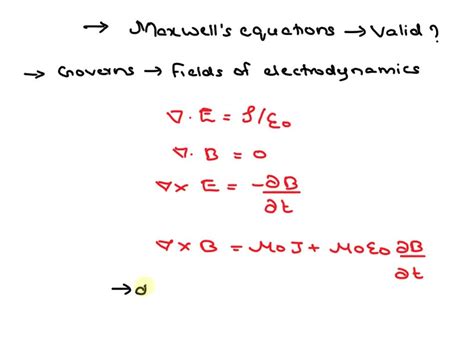 → Maxwell's equations → Valid ?
→ Governs → Fields of electrodynamics
∇ . E = ρ/ε₀
∇ . B = 0
∇ × E = -∂B/∂t
∇ × B = μ₀J + μ₀ε₀ ∂B/∂t
→ d